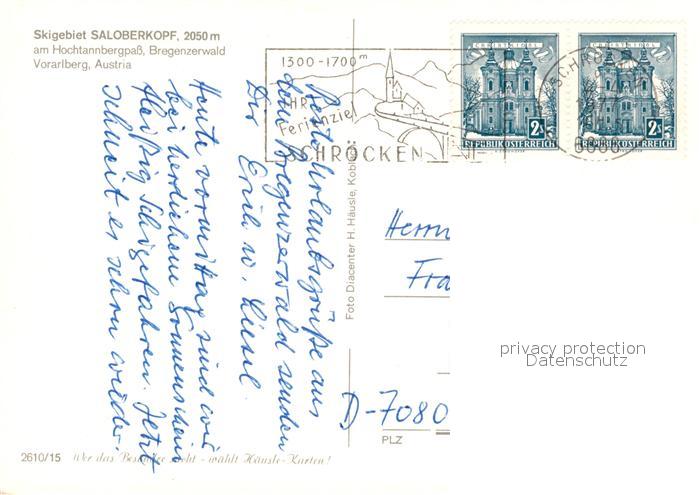 Skigebiet SALOBERKOPF, 2050 m
am Hochtannbergpaß, Bregenzerwald
Vorarlberg, Austria
1300-1700m
IHR
Ferienziel
SCHRÖCKEN
CHRISTKINDL
2S
REPUBLIK ÖSTERREICH
CHRISTKINDL
2S
REPUBLIK ÖSTERREICH
SCHRÖ
Beste Urlaubsgrüße aus
dem Bregenzerwald senden
Dir
Erich u. Liesel.
Heute vormittag sind wir
bei herrlichem Sonnenschein
fleißig Schigefahren. Jetzt
schneit es schon wieder.
Foto Diacenter H. Häusle, Kobl
Herrn
Fra
D-7080
PLZ
privacy protection
Datenschutz
2610/15 Wer das Besondre sucht - wählt Häusle-Karten!